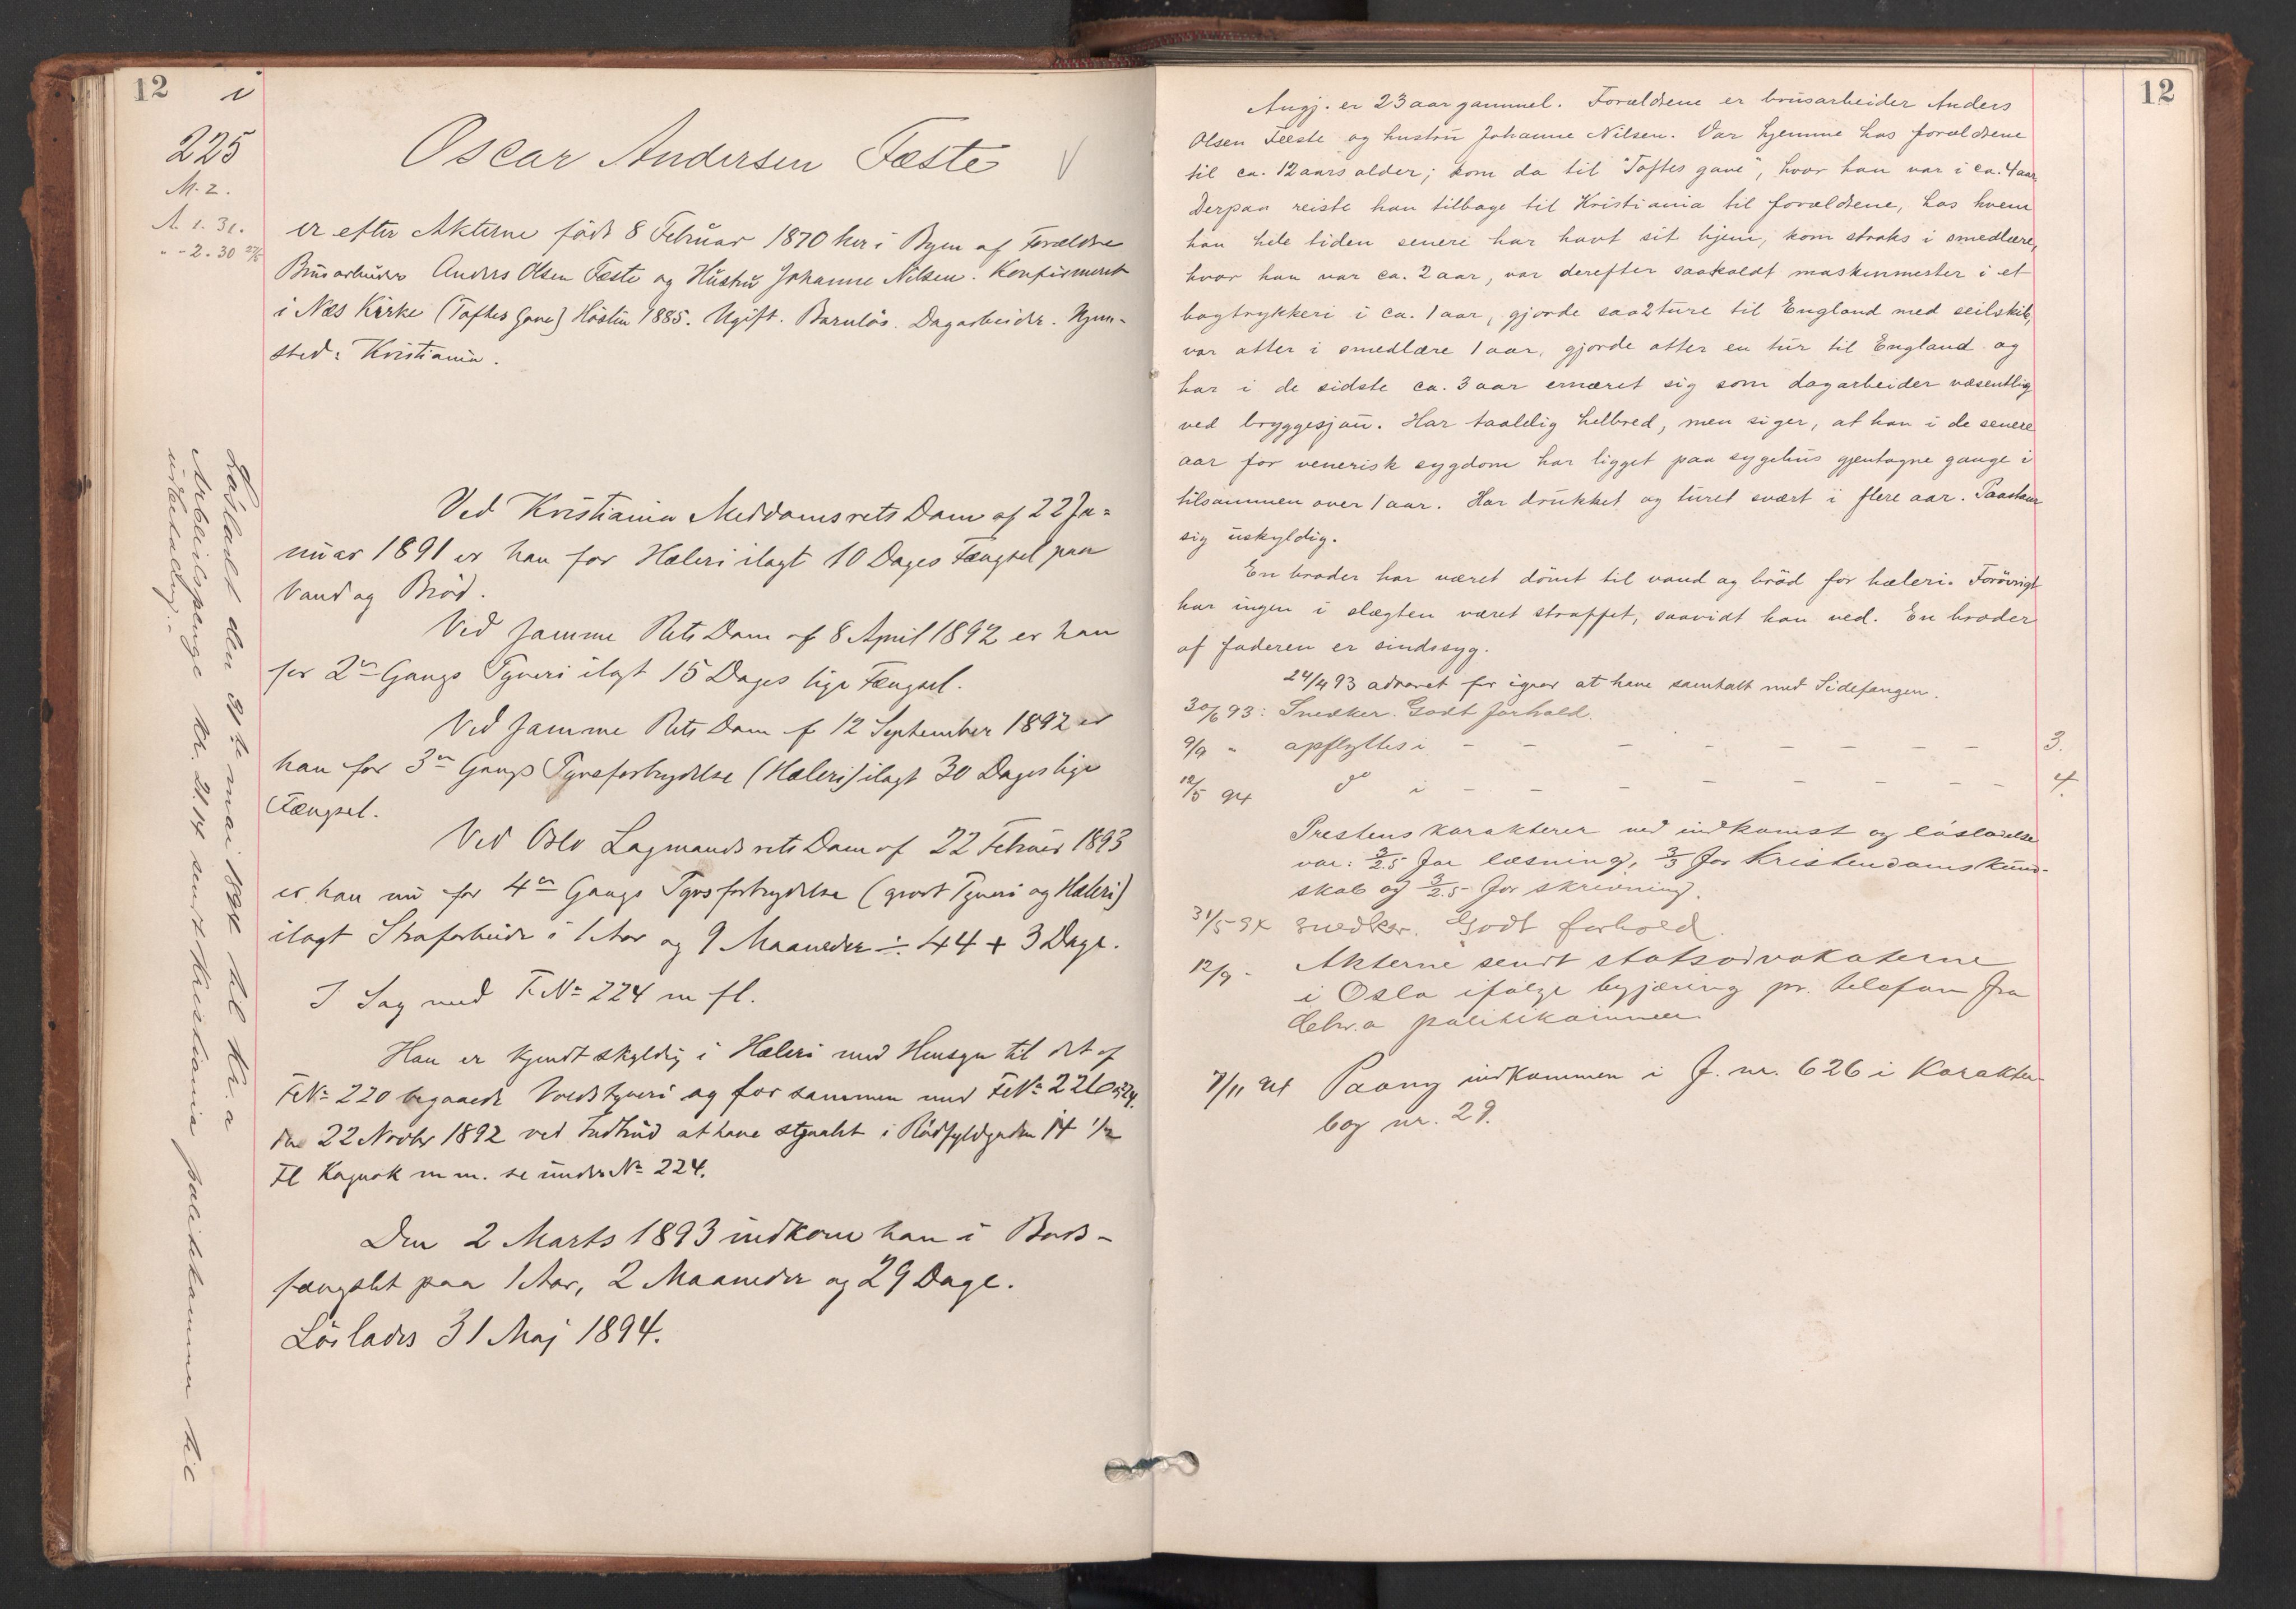 12
i
225
M. 2.
A. 1. 31.
" - 2. 30
Oscar Andersen Fæste
er efter Akterne född 8 Februar 1870 her i Byen af Forældre
Brusarbeider Anders Olsen Fæste og Hustru Johanne Nilsen. Konfirmeret
i Næs Kirke (Toftes Gave) Hösten 1885. Ugift. Barnlös. Dagarbeider. Hjem-
sted: Kristiania.
Ved Kristiania Meddomsrets Dom af 22 Ja-
nuar 1891 er han for Hæleri ilagt 10 Dages Fængsel paa
Vand og Bröd.
Ved samme Rets Dom af 8 April 1892 er han
for 2en Gangs Tyveri ilagt 15 Dages lige Fængsel.
Ved samme Rets Dom af 12 September 1892 er
han for 3en Gangs Tyvsforbrydelse (Hæleri) ilagt 30 Dages lige
Fængsel.
Ved Oslo Lagmandsrets Dom af 22 Februar 1893
er han nu for 4en Gangs Tyvsforbrydelse (grovt Tyveri og Hæleri)
ilagt Strafarbeide i 1 Aar og 9 Maaneder ÷ 44 + 3 Dage.
I Sag med F. No 224 m fl.
Han er kjendt skyldig i Hæleri med Hensyn til det af
F No 220 begaaede Voldstyveri og for sammen med F No 221 og 224
den 22 Novbr 1892 ved Indbrud at have stjaalet i Rödfyldgaden 14 1/2
Fl Kognak m m. se under No 224.
Den 2 Marts 1893 indkom han i Bods-
fængslet paa 1 Aar, 2 Maaneder og 29 Dage.
Löslades 31 Maj 1894.
Lösladt den 31te mai 1894 til Kr.a
Arbeidspenge kr. 21.14 sendt Kristiania politikammer til
udbetaling.
12
Angj. er 23 aar gammel. Forældrene er brusarbeider Anders
Olsen Fæste og hustru Johanne Nilsen. Var hjemme hos forældrene
til ca. 12 aars alder; kom da til "Toftes gave", hvor han var i ca. 4 aar.
Derpaa reiste han tilbage til Kristiania til forældrene, hos hvem
han hele tiden senere har havt sit hjem, kom straks i smedlære,
hvor han var ca. 2 aar, var derefter saakaldt maskinmester i et
bogtrykkeri i ca. 1 aar, gjorde saa 2 ture til England med seilskib,
var atter i smedlære 1 aar, gjorde atter en tur til England og
har i de sidste ca. 3 aar ernæret sig som dagarbeider væsentlig
ved bryggesjau. Har taalelig helbred, men siger, at han i de senere
aar for venerisk sygdom har ligget paa sygehus gjentagne gange i
tilsammen over 1 aar. Har drukket og turet svært i flere aar. Paastaar
sig uskyldig.
En broder har været dömt til vand og bröd for hæleri. Forövrigt
har ingen i slægten været straffet, saavidt han ved. En broder
af faderen er sindssyg.
24/4 93 advaret for igaar at have samtalt med Sidefangen.
30/6 93: Snedker. Godt forhold.
9/9 " opflyttes i - - - - - - - - 3.
12/5 94 do i - - - - - - - 4.
Prestens karakterer ved indkomst og lösladelse
var: 3/2.5 for læsning, 3/3 for Kristendomskund-
skab og 3/2.5 for skrivning.
31/5 94 snedker. Godt forhold.
12/9 - Akterne sendt statsadvokaterne
i Oslo ifölge begjæring pr. telefon fra
Chr.a politikammer
7/11 94 Paany indkommen i F. nr. 626 i Karakter-
bog nr. 29.